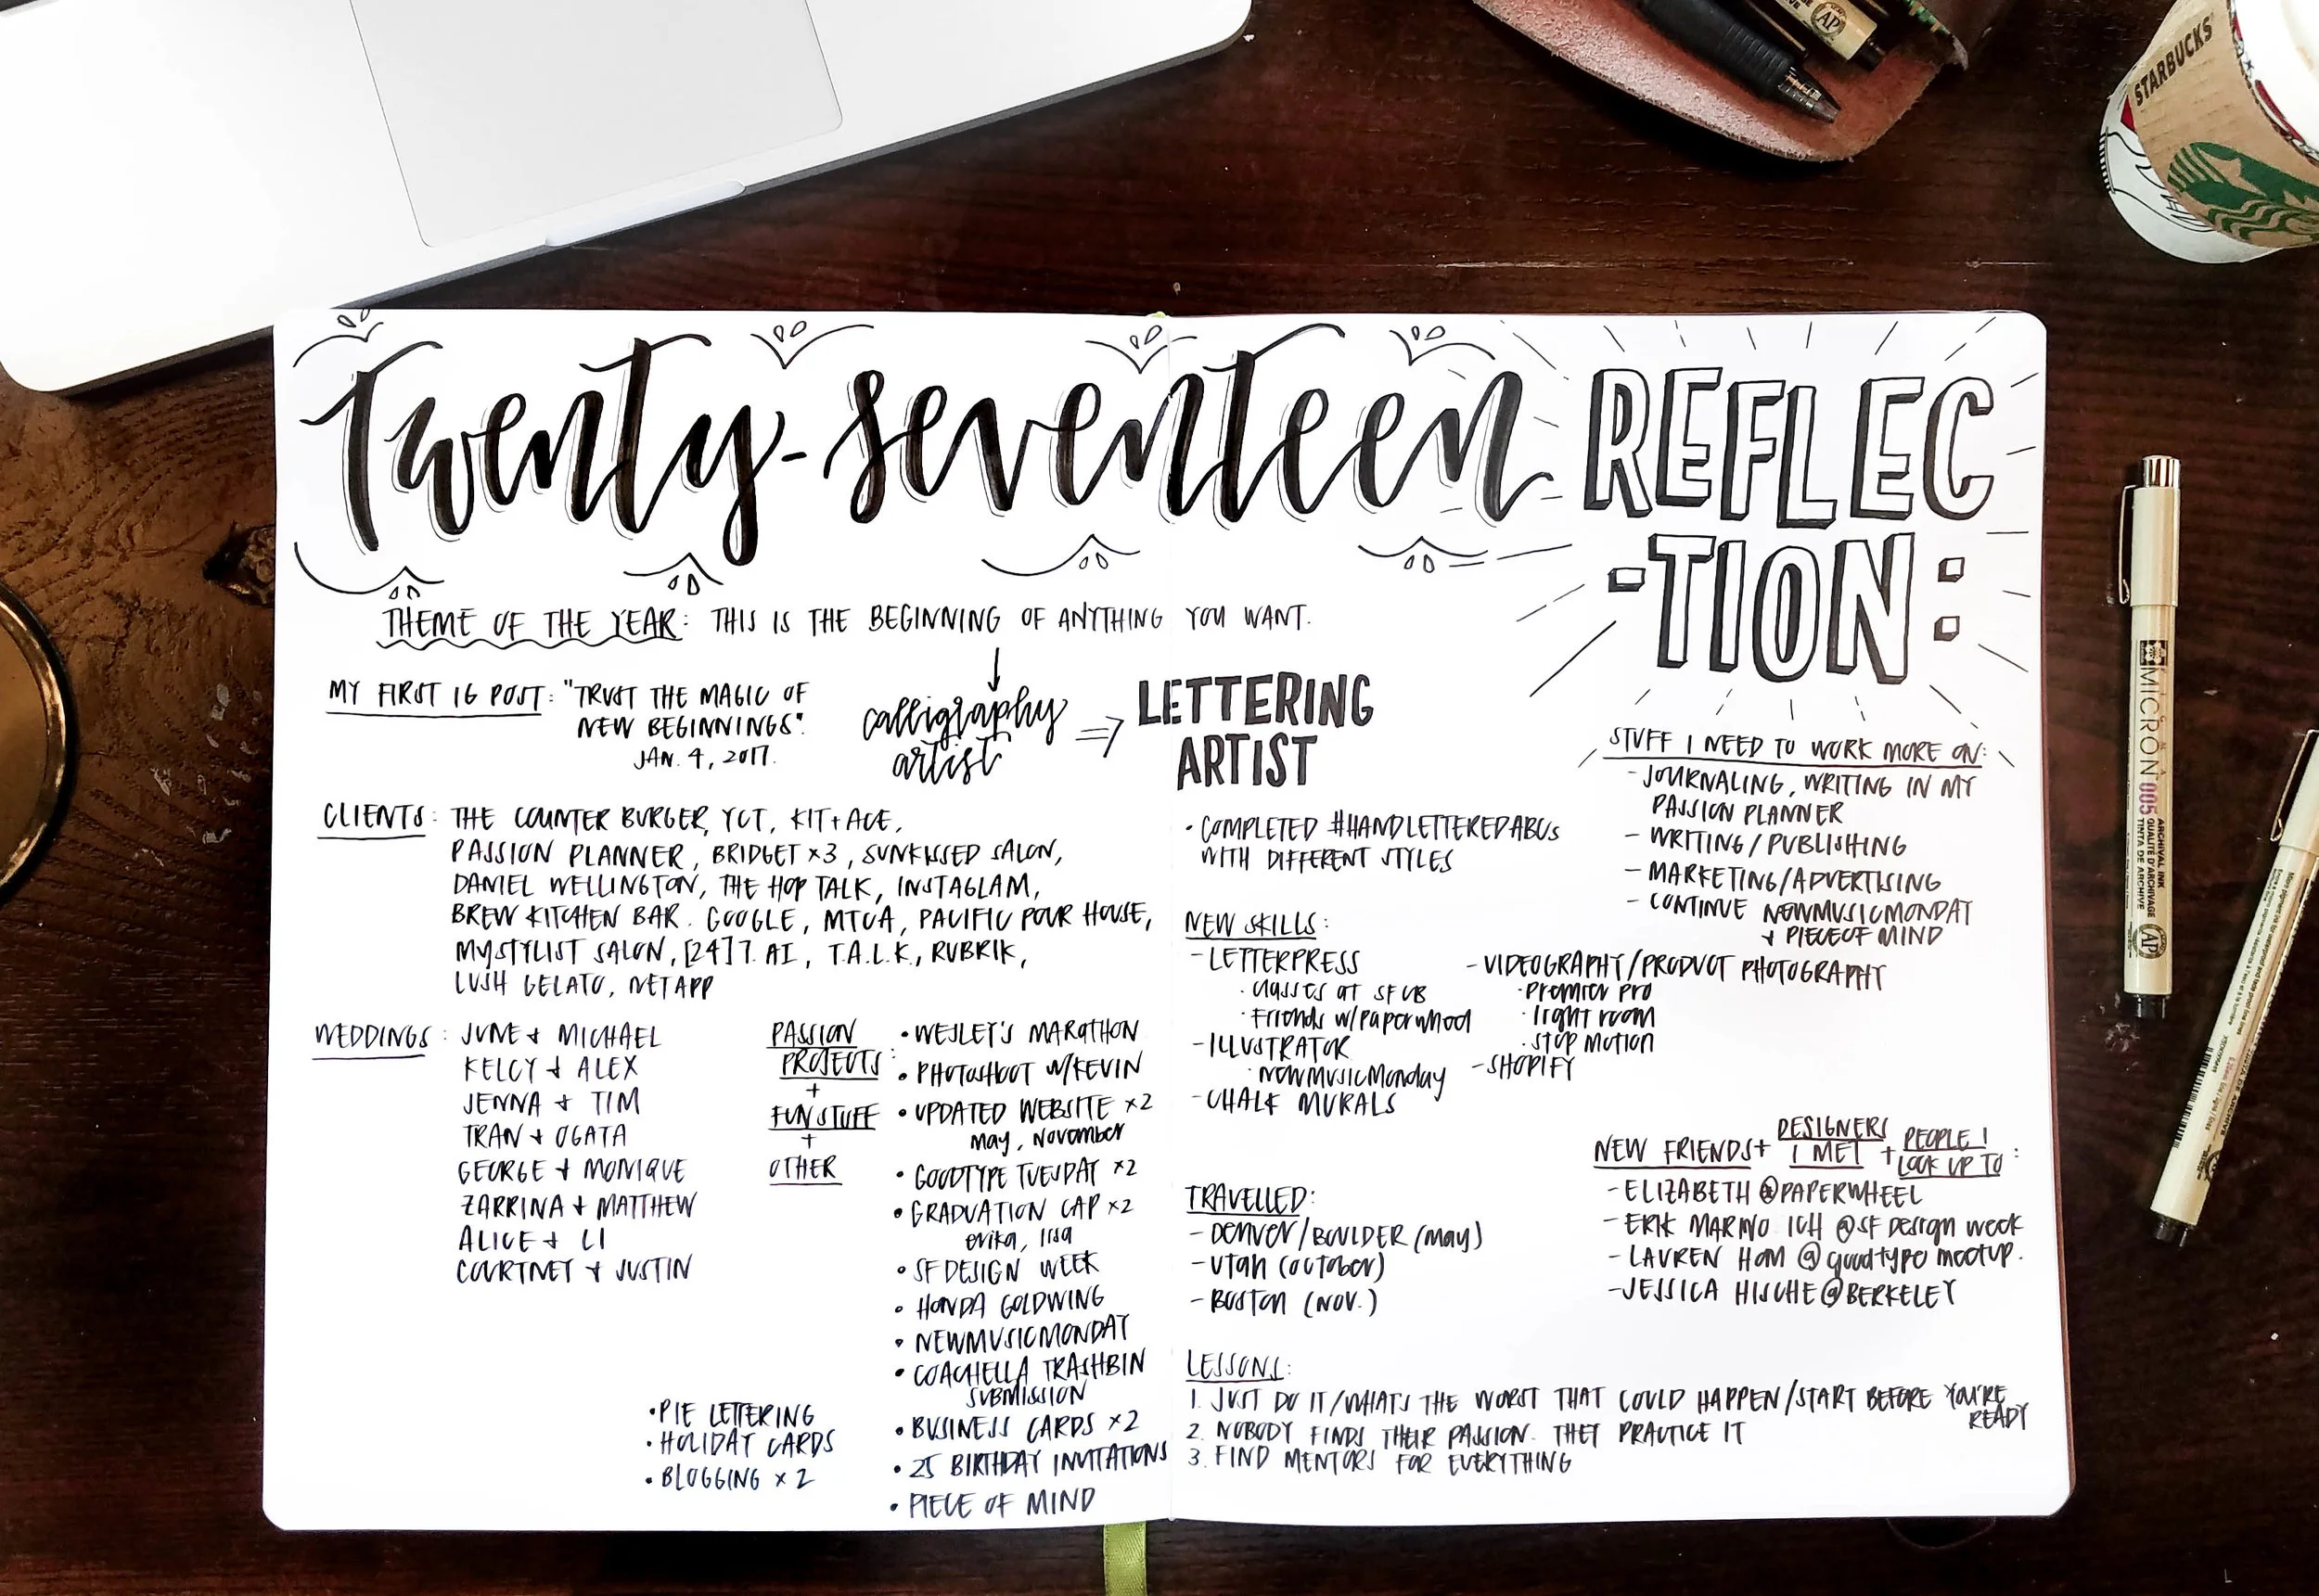 Twenty-seventeen REFLEC
-TION:
THEME OF THE YEAR: THIS IS THE BEGINNING OF ANYTHING YOU WANT.
MY FIRST IG POST: "TRUST THE MAGIC OF
NEW BEGINNINGS".
JAN. 4, 2017.
calligraphy
artist
⇒
LETTERING
ARTIST
CLIENTS: THE COUNTER BURGER, YCT, KIT+ACE,
PASSION PLANNER, BRIDGET ×3, SUNKISSED SALON,
DANIEL WELLINGTON, THE HOP TALK, INSTAGLAM,
BREW KITCHEN BAR. GOOGLE, MTCA, PACIFIC POUR HOUSE,
MYSTYLIST SALON, [24]7. AI, T.A.L.K., RUBRIK,
LUSH GELATO, NETAPP
WEDDINGS: JUNE + MICHAEL
KELCY + ALEX
JENNA + TIM
TRAN + OGATA
GEORGE + MONIQUE
ZARRINA + MATTHEW
ALICE + LI
COURTNEY + JUSTIN
PASSION
PROJECTS:
+
FUN STUFF
+
OTHER
• WESLEY'S MARATHON
• PHOTOSHOOT W/KEVIN
• UPDATED WEBSITE ×2
May, November
• GOODTYPE TUESDAY ×2
• GRADUATION CAP ×2
erika, lisa
• SF DESIGN WEEK
• HONDA GOLDWING
• NEWMUSICMONDAY
• COACHELLA TRASHBIN
SUBMISSION
• BUSINESS CARDS ×2
• 25 BIRTHDAY INVITATIONS
• PIECE OF MIND
• PIE LETTERING
• HOLIDAY CARDS
• BLOGGING × 2
• COMPLETED #HANDLETTEREDABCS
WITH DIFFERENT STYLES
NEW SKILLS:
- LETTERPRESS
· classes at SFCB
· Friends w/paperwheel
- ILLUSTRATOR
· NewMusicMonday
- CHALK MURALS
- VIDEOGRAPHY/PRODUCT PHOTOGRAPHY
· Premier Pro
· light room
· stop motion
- SHOPIFY
STUFF I NEED TO WORK MORE ON:
- JOURNALING, WRITING IN MY
PASSION PLANNER
- WRITING/PUBLISHING
- MARKETING/ADVERTISING
- CONTINUE NEWMUSICMONDAY
+ PIECEOF MIND
TRAVELLED:
- Denver/BOULDER (May)
- Utah (October)
- Boston (NOV.)
NEW FRIENDS + DESIGNERS I MET + PEOPLE I LOOK UP TO:
- ELIZABETH @PAPERWHEEL
- ERIK MARINOVICH @SF Design week
- LAUREN HOM @goodtype meetup.
- JESSICA HISCHE @BERKELEY
LESSONS:
1. JUST DO IT/WHATS THE WORST THAT COULD HAPPEN/START BEFORE YOU'RE
READY
2. NOBODY FINDS THEIR PASSION. THEY PRACTICE IT
3. FIND MENTORS FOR EVERYTHING
STARBUCKS
AP
MICRON 005
ARCHIVAL INK
QUALITÉ D'ARCHIVAGE
TINTA DE ARCHIVE
AP